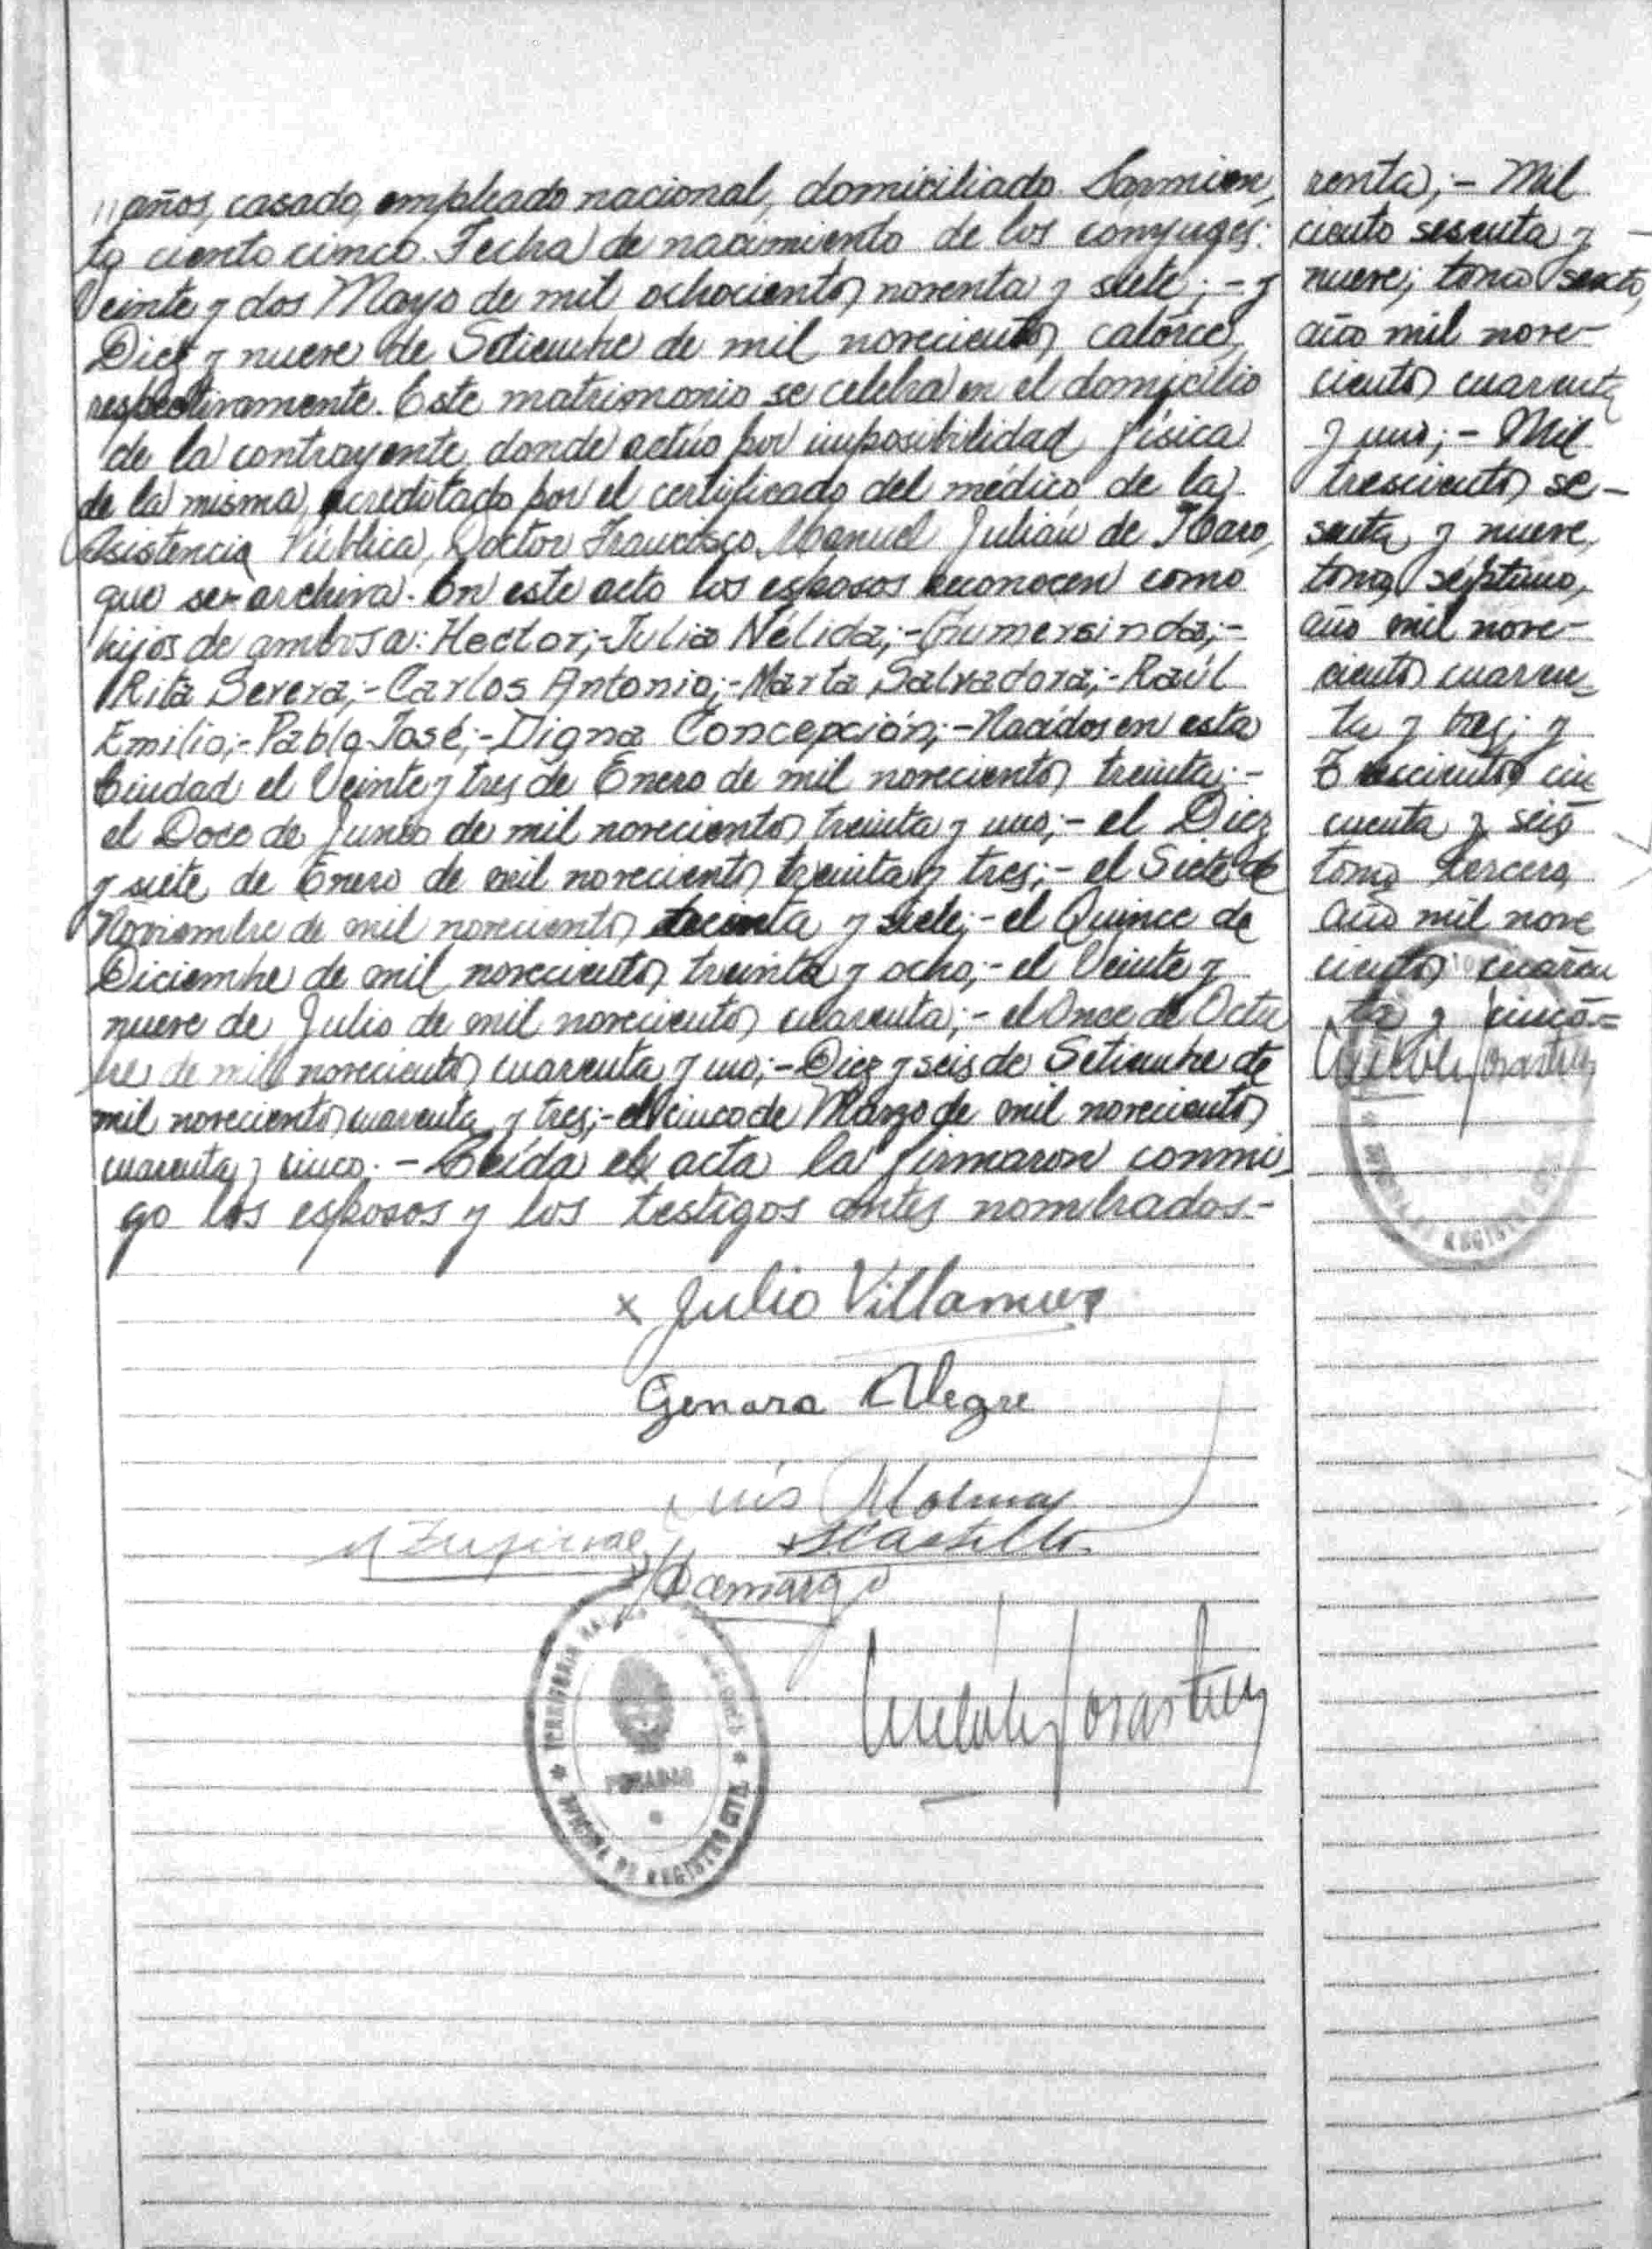 años, casado, empleado nacional, domiciliado Sarmien,
to ciento cinco. Fecha de nacimiento de los cónyuges:
Veinte y dos Mayo de mil ochocientos noventa y siete; - y
Diez y nueve de Setiembre de mil novecientos catorce,
respectivamente. Este matrimonio se celebra en el domicilio
de la contrayente, donde actúo por imposibilidad física
de la misma, acreditado por el certificado del médico de la
Asistencia Pública, Doctor Francisco Manuel Julián de Haro,
que se archiva. En este acto los esposos reconocen como
hijos de ambos a: Hector;-Julia Nélida;-Gumersinda;-
Rita Severa;-Carlos Antonio;-Marta Salvadora;-Raúl
Emilio;-Pablo José;-Digna Concepción;-Nacidos en esta
Ciudad el Veinte y tres de Enero de mil novecientos treinta;-
el Doce de Junio de mil novecientos treinta y uno;- el Diez
y siete de Enero de mil novecientos treinta y tres;- el Siete de
Noviembre de mil novecientos treinta y siete;- el Quince de
Diciembre de mil novecientos treinta y ocho;- el Veinte y
nueve de Julio de mil novecientos cuarenta;- el Once de Octu
bre de mil novecientos cuarenta y uno;- Diez y seis de Setiembre de
mil novecientos cuarenta y tres;- el cinco de Marzo de mil novecientos
cuarenta y cinco.- Leída el acta la firmaron conmi-
go los esposos y los testigos antes nombrados.-
x Julio Villamuez
Genara Alegre
Luis Molina
Castillo
Camargo
POSADAS
OFICINA DE REGISTRO CIVIL
renta;- Mil
ciento sesenta y
nueve; tomo sexto,
año mil nove-
cientos cuarenta
y uno;- Mil
trescientos se-
senta y nueve,
tomo séptimo,
año mil nove-
cientos cuaren-
ta y tres; y
Trescientos cin
cuenta y seis
tomo tercero
año mil nove
cientos cuaren
ta y cinco=
REGISTRO